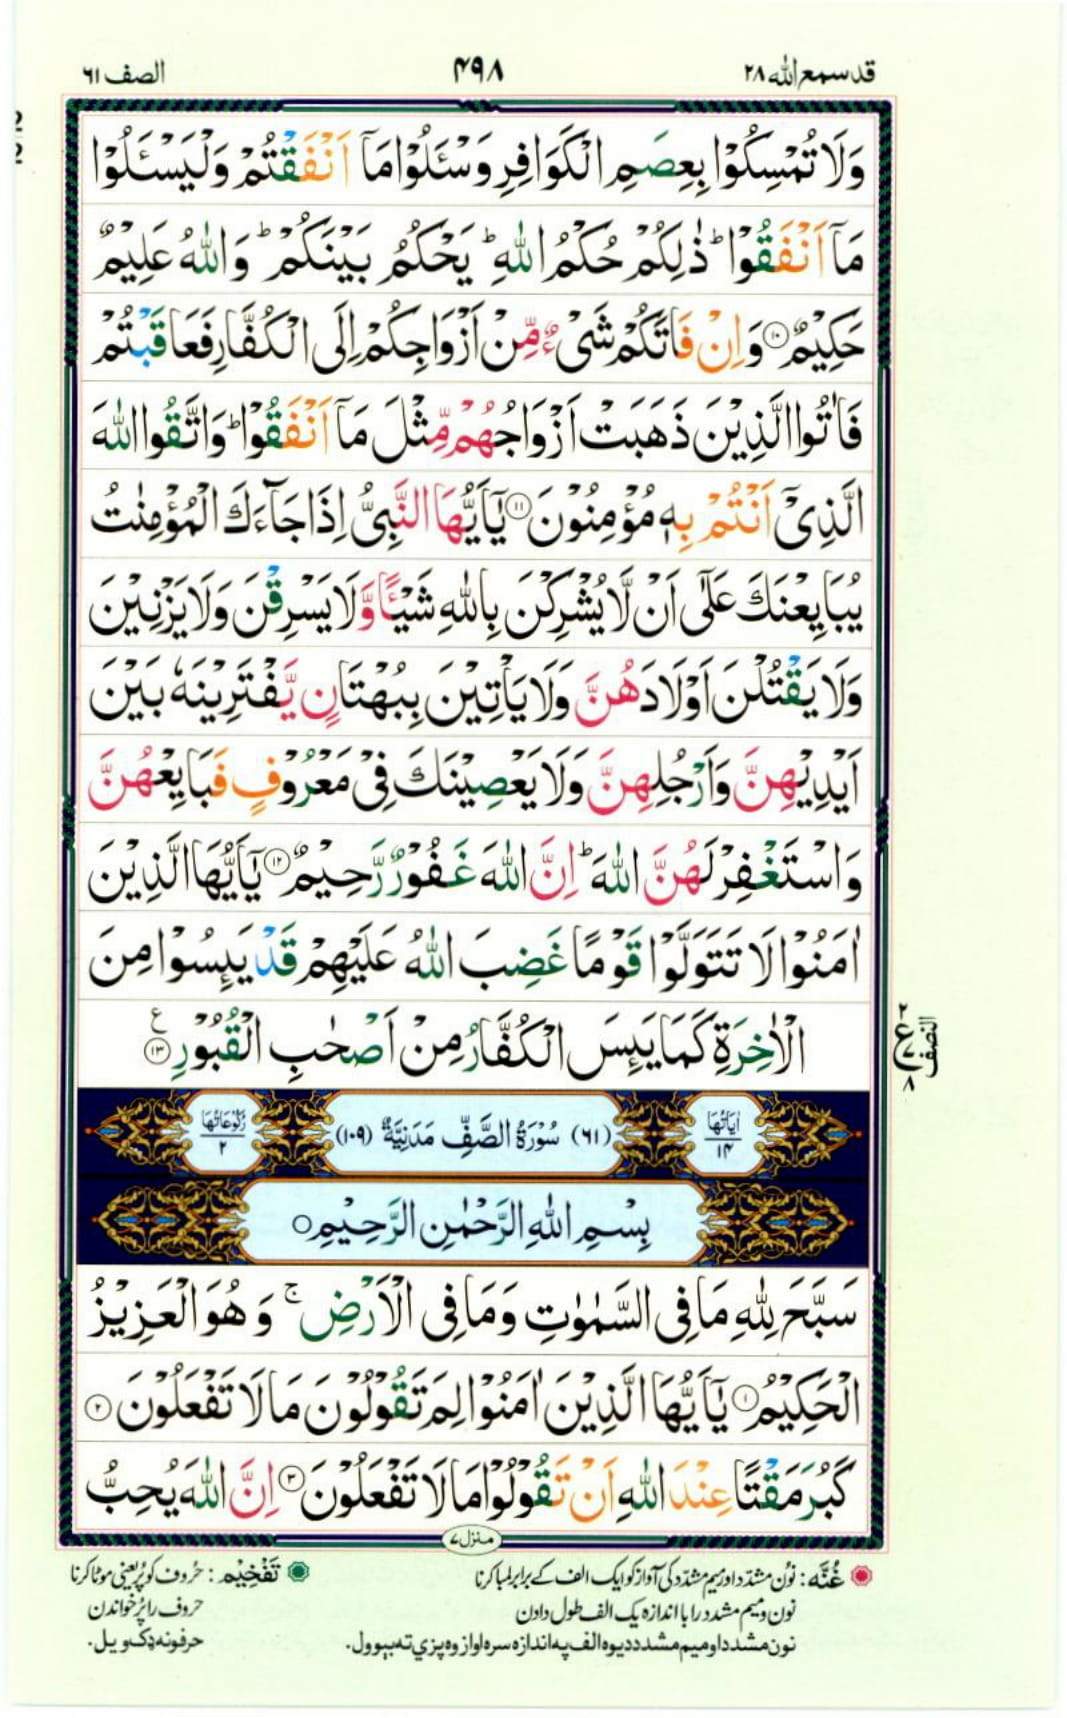 قد سمع الله ۲۸
۴۹۸
الصف ۶۱
وَلَا تُمْسِكُوْا بِعِصَمِ الْكَوَافِرِ وَسْـَٔلُوْا مَآ اَنْفَقْتُمْ وَلْيَسْـَٔلُوْا
مَآ اَنْفَقُوْا ؕ ذٰلِكُمْ حُكْمُ اللّٰهِ ؕ يَحْكُمُ بَيْنَكُمْ ؕ وَاللّٰهُ عَلِيْمٌ
حَكِيْمٌ ۝۱۰ وَاِنْ فَاتَكُمْ شَیْءٌ مِّنْ اَزْوَاجِكُمْ اِلَى الْكُفَّارِ فَعَاقَبْتُمْ
فَاٰتُوا الَّذِيْنَ ذَهَبَتْ اَزْوَاجُهُمْ مِّثْلَ مَآ اَنْفَقُوْا ؕ وَاتَّقُوا اللّٰهَ
الَّذِیْۤ اَنْتُمْ بِهٖ مُؤْمِنُوْنَ ۝۱۱ يٰۤاَيُّهَا النَّبِیُّ اِذَا جَآءَكَ الْمُؤْمِنٰتُ
يُبَايِعْنَكَ عَلٰۤى اَنْ لَّا يُشْرِكْنَ بِاللّٰهِ شَيْـًٔا وَّلَا يَسْرِقْنَ وَلَا يَزْنِيْنَ
وَلَا يَقْتُلْنَ اَوْلَادَهُنَّ وَلَا يَاْتِيْنَ بِبُهْتَانٍ يَّفْتَرِيْنَهٗ بَيْنَ
اَيْدِيْهِنَّ وَاَرْجُلِهِنَّ وَلَا يَعْصِيْنَكَ فِیْ مَعْرُوْفٍ فَبَايِعْهُنَّ
وَاسْتَغْفِرْ لَهُنَّ اللّٰهَ ؕ اِنَّ اللّٰهَ غَفُوْرٌ رَّحِيْمٌ ۝۱۲ يٰۤاَيُّهَا الَّذِيْنَ
اٰمَنُوْا لَا تَتَوَلَّوْا قَوْمًا غَضِبَ اللّٰهُ عَلَيْهِمْ قَدْ يَىِٕسُوْا مِنَ
الْاٰخِرَةِ كَمَا يَىِٕسَ الْكُفَّارُ مِنْ اَصْحٰبِ الْقُبُوْرِ ۝۱۳ ع
۲
ع
۷
۸
النصف
اٰيَاتُهَا ۱۴
(۶۱) سُوْرَةُ الصَّفِّ مَدَنِيَّةٌ (۱۰۹)
رُكُوْعَاتُهَا ۲
بِسْمِ اللّٰهِ الرَّحْمٰنِ الرَّحِيْمِ ○
سَبَّحَ لِلّٰهِ مَا فِی السَّمٰوٰتِ وَمَا فِی الْاَرْضِ ۚ وَهُوَ الْعَزِيْزُ
الْحَكِيْمُ ۝۱ يٰۤاَيُّهَا الَّذِيْنَ اٰمَنُوْا لِمَ تَقُوْلُوْنَ مَا لَا تَفْعَلُوْنَ ۝۲
كَبُرَ مَقْتًا عِنْدَ اللّٰهِ اَنْ تَقُوْلُوْا مَا لَا تَفْعَلُوْنَ ۝۳ اِنَّ اللّٰهَ يُحِبُّ
منزل ۷
غُنَّه : نوُن مشدّد اور میم مشدّد کی آواز کو ایک الف کے برابر لمبا کرنا
نون و میم مشدد را با اندازه یک الف طول دادن
نون مشدد او میم مشدد د یوه الف په اندازه سره اواز وه پزي ته بیوول.
تَفْخِيْم : حُروف کو پُر یعنی موٹا کرنا
حروف را پُر خواندن
حرفونه ډک ویل.